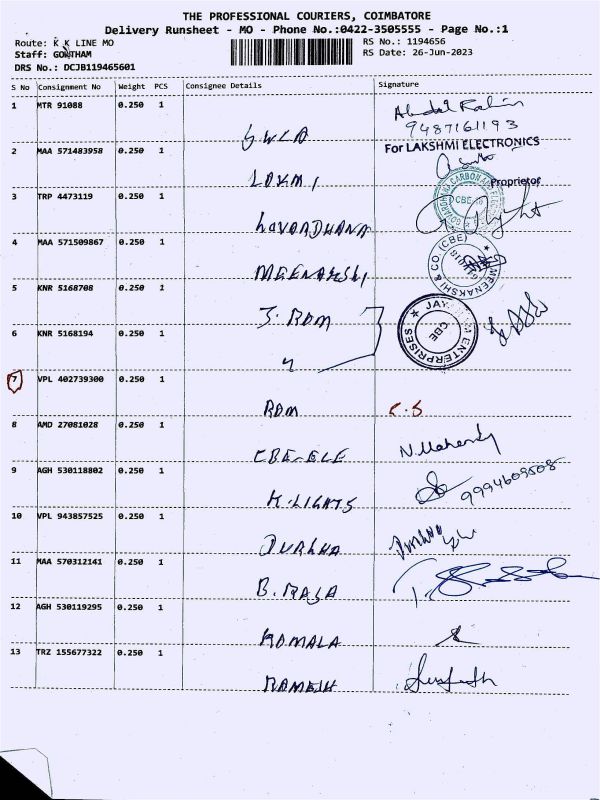 THE PROFESSIONAL COURIERS, COIMBATORE
Delivery Runsheet - MO - Phone No.:0422-3505555 - Page No.:1
Route: K K LINE MO
RS No.: 1194656
Staff: GOWTHAM
RS Date: 26-Jun-2023
DRS No.: DCJB119465601
S No Consignment No Weight PCS Consignee Details Signature
1 MTR 91088 0.250 1
9487161193
2 MAA 571483958 0.250 1
For LAKSHMI ELECTRONICS
LAXMI
Proprietor
3 TRP 4473119 0.250 1
CBE
4 MAA 571509867 0.250 1
MEENAKSHI
MEENAKSHI & CO. (CBE)
5 KNR 5168708 0.250 1
J. RAM
6 KNR 5168194 0.250 1
ENTERPRISES
CBE
7 VPL 402739300 0.250 1
RAM
C.S
8 AMD 27081028 0.250 1
CBE-ELE
9 AGH 530118802 0.250 1
K.LIGHTS
9994609508
10 VPL 943857525 0.250 1
DURGHA
11 MAA 570312141 0.250 1
B. RAJA
12 AGH 530119295 0.250 1
KOMALA
13 TRZ 155677322 0.250 1
RAMESH